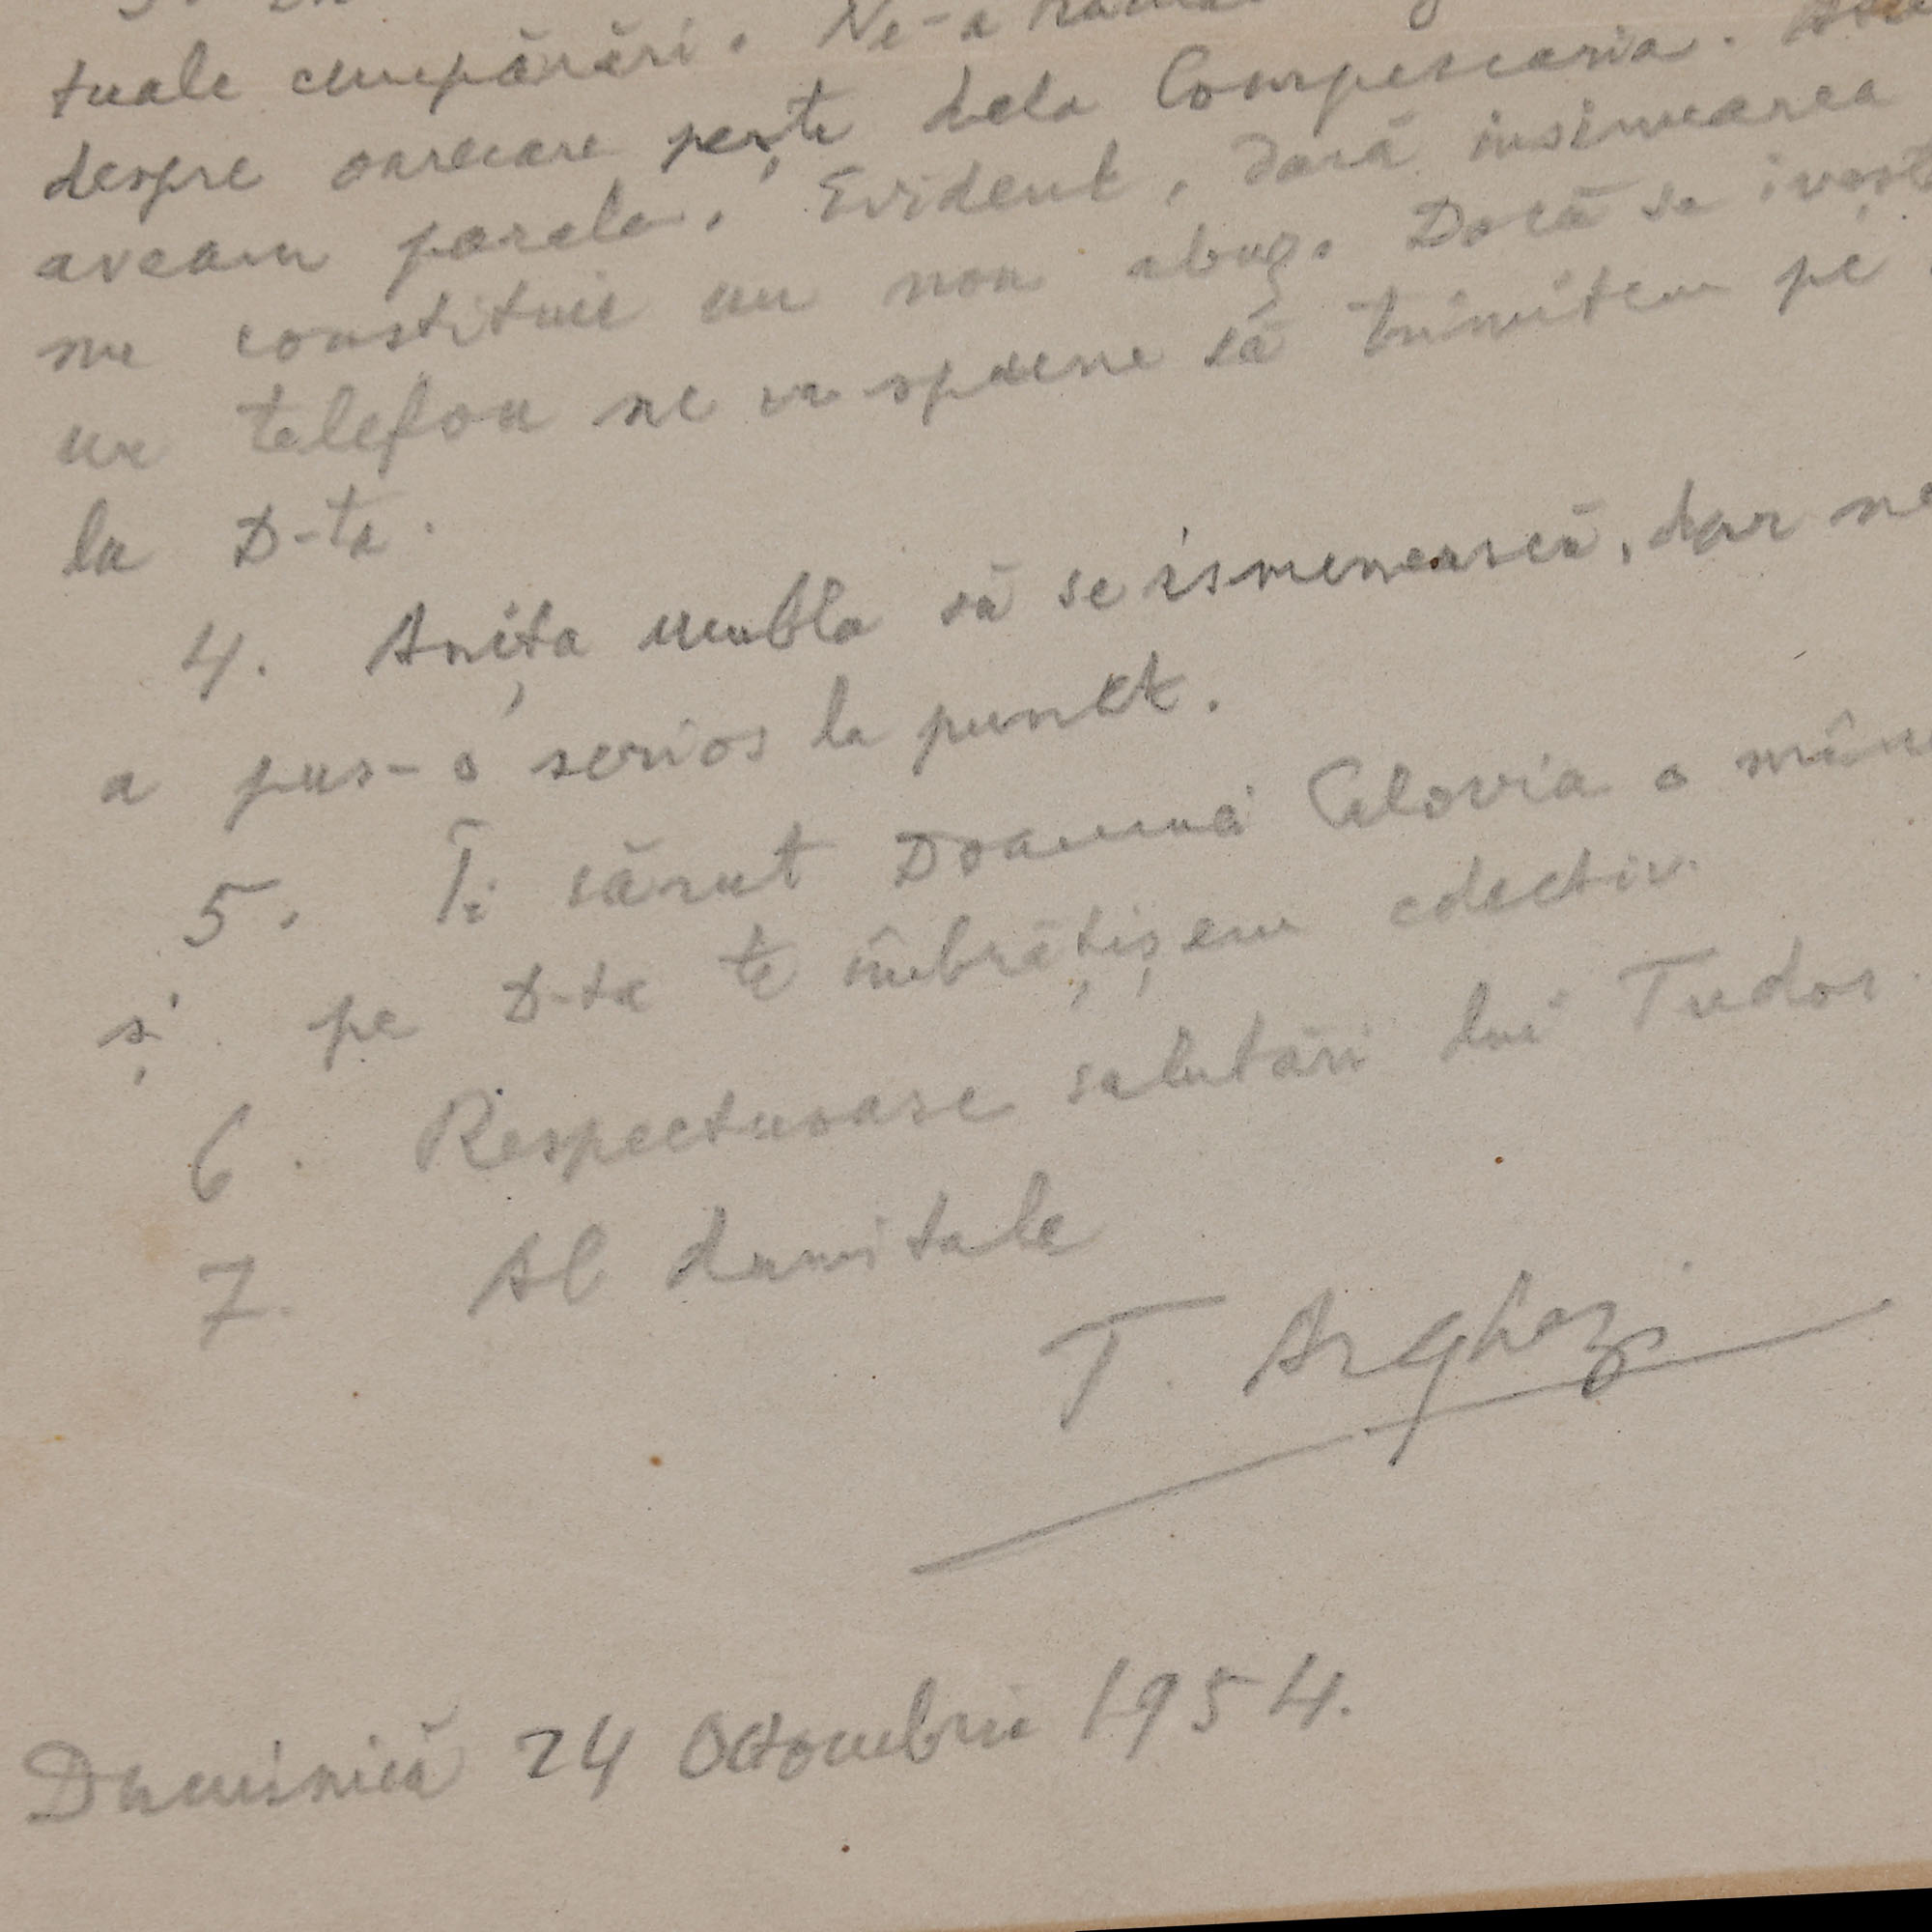 tuale cumpărări. Ne-a
despre oarecare pește dela Compescaria.
aveam parale. Evident, dacă insinuarea
nu constituie un nou abuz. Dacă se ivește
un telefon ne va spune să trimitem pe
la D-ta.
4. Anița umbla să se ismenească, dar ne
a pus-o serios la punkt.
5. Îi sărut Doamnă Clovia o mână
și pe D-ta te îmbrățișem colectiv.
6. Respectuoase salutări lui Tudor.
7. Al dumitale
T. Arghezi
Duminică 24 Octombrie 1954.